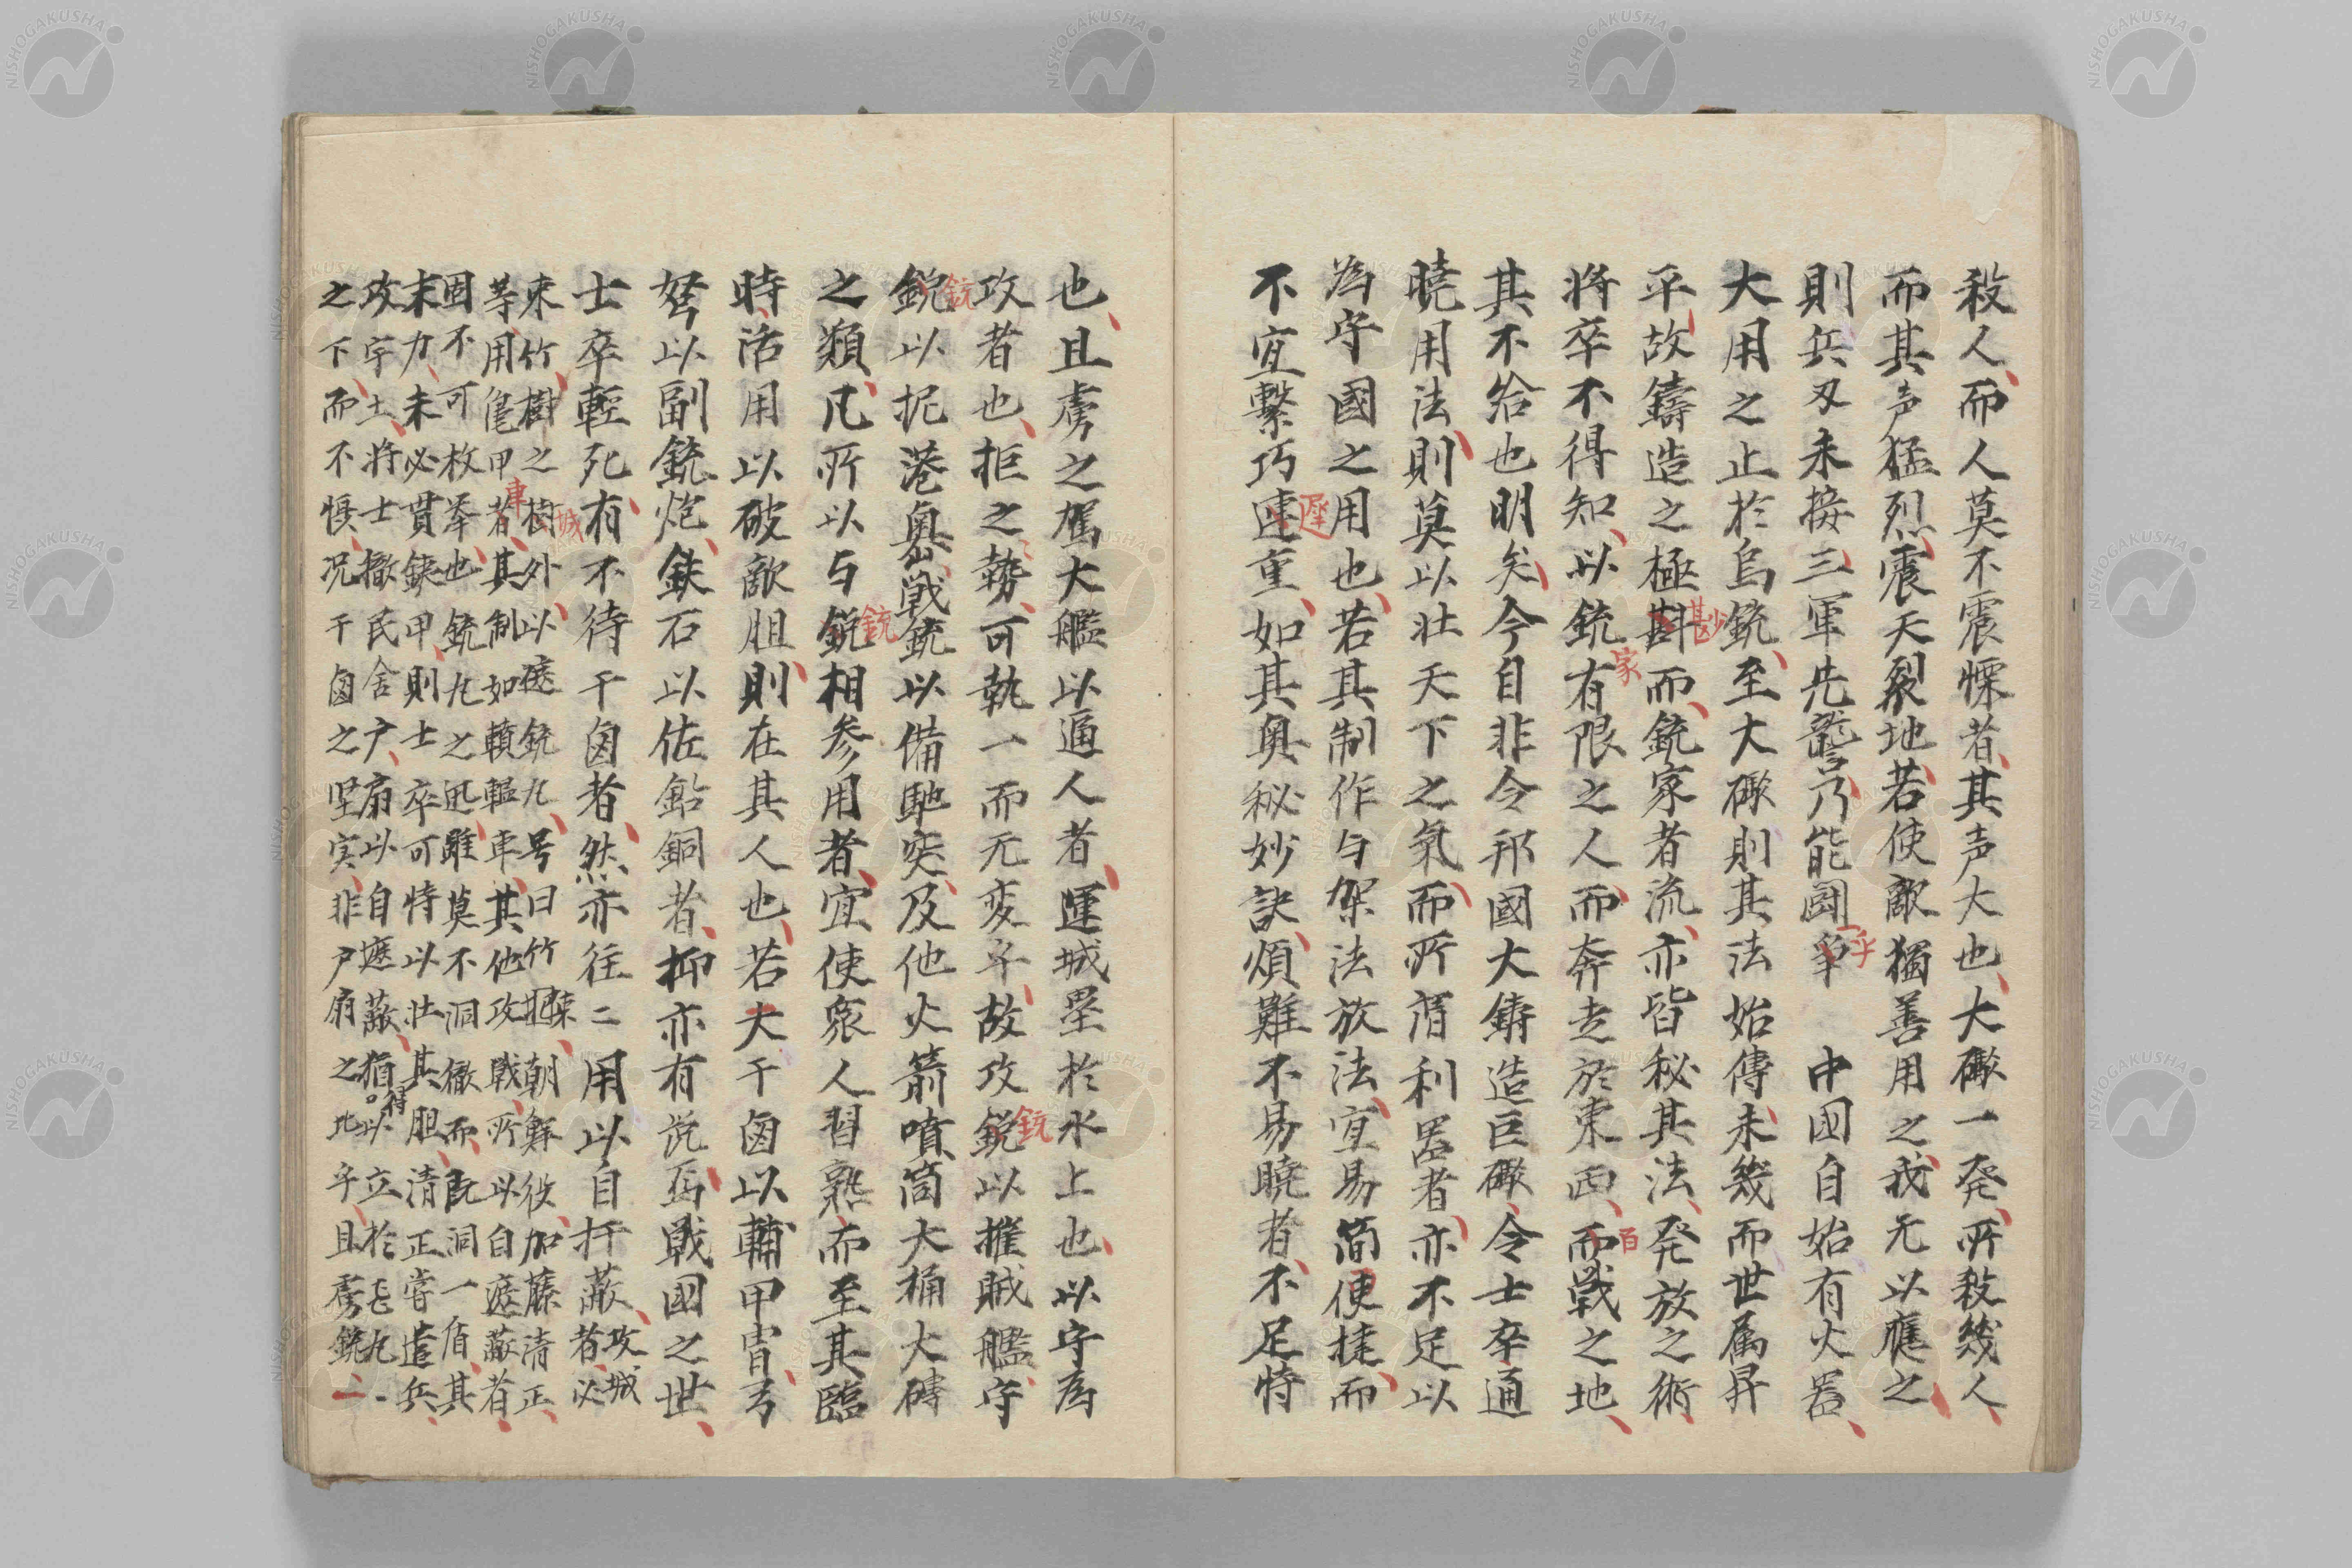 殺人而人莫不震慄者其声大也大礮一発所殺幾人
而其声猛烈震天裂地若使敵獨善用之我无以應之
則兵刃未接三軍先讋乃能鬪争乎 中国自始有火器
大用之止於鳥銃至大礮則其法始傳未幾而世属昇
平故鑄造之極尠而銃家者流亦皆秘其法発放之術
将卒不得知以銃家有限之人而奔走於東西百戦之地
其不給也明矣今自非令邦國大鋳造巨礮令士卒通
暁用法則莫以壮天下之氣而所謂利器者亦不足以
為守國之用也若其制作与架法放法宜易簡使捷而
不宜繋巧遅重如其奥秘妙訣煩難不易曉者不足恃
也且虜之駕大艦以逼人者運城塁於水上也以守為
攻者也拒之勢可執一而无変乎故攻銃以摧賊艦守
銃以扼港奥戦銃以備馳突及他火箭噴筒大桶大磚
之類凡所以与銃相参用者宜使衆人習熟而至其臨
時活用以破敵胆則在其人也若夫干囪以輔甲冑弓
弩以副銃炮鉄石以佐鉛銅者抑亦有説焉戦國之世
士卒輕死有不待干囪者然亦往々用以自扞蔽者攻城必
束竹樹之城外以禦銃丸号曰竹束朝鮮役加藤清正
等用亀甲車者其制如轒轀車其他攻戦所以自遮蔽者
固不可枚挙也銃丸之迅雖莫不洞徹而既洞一盾其
末力未必貫鉄甲則士卒可恃以壮其胆清正嘗遣兵
攻宇土将士撤民舎戸扇以自遮蔽猶得以立於乱丸
之下而不惧况干囪之堅実非戸扇之比乎且虜銃一